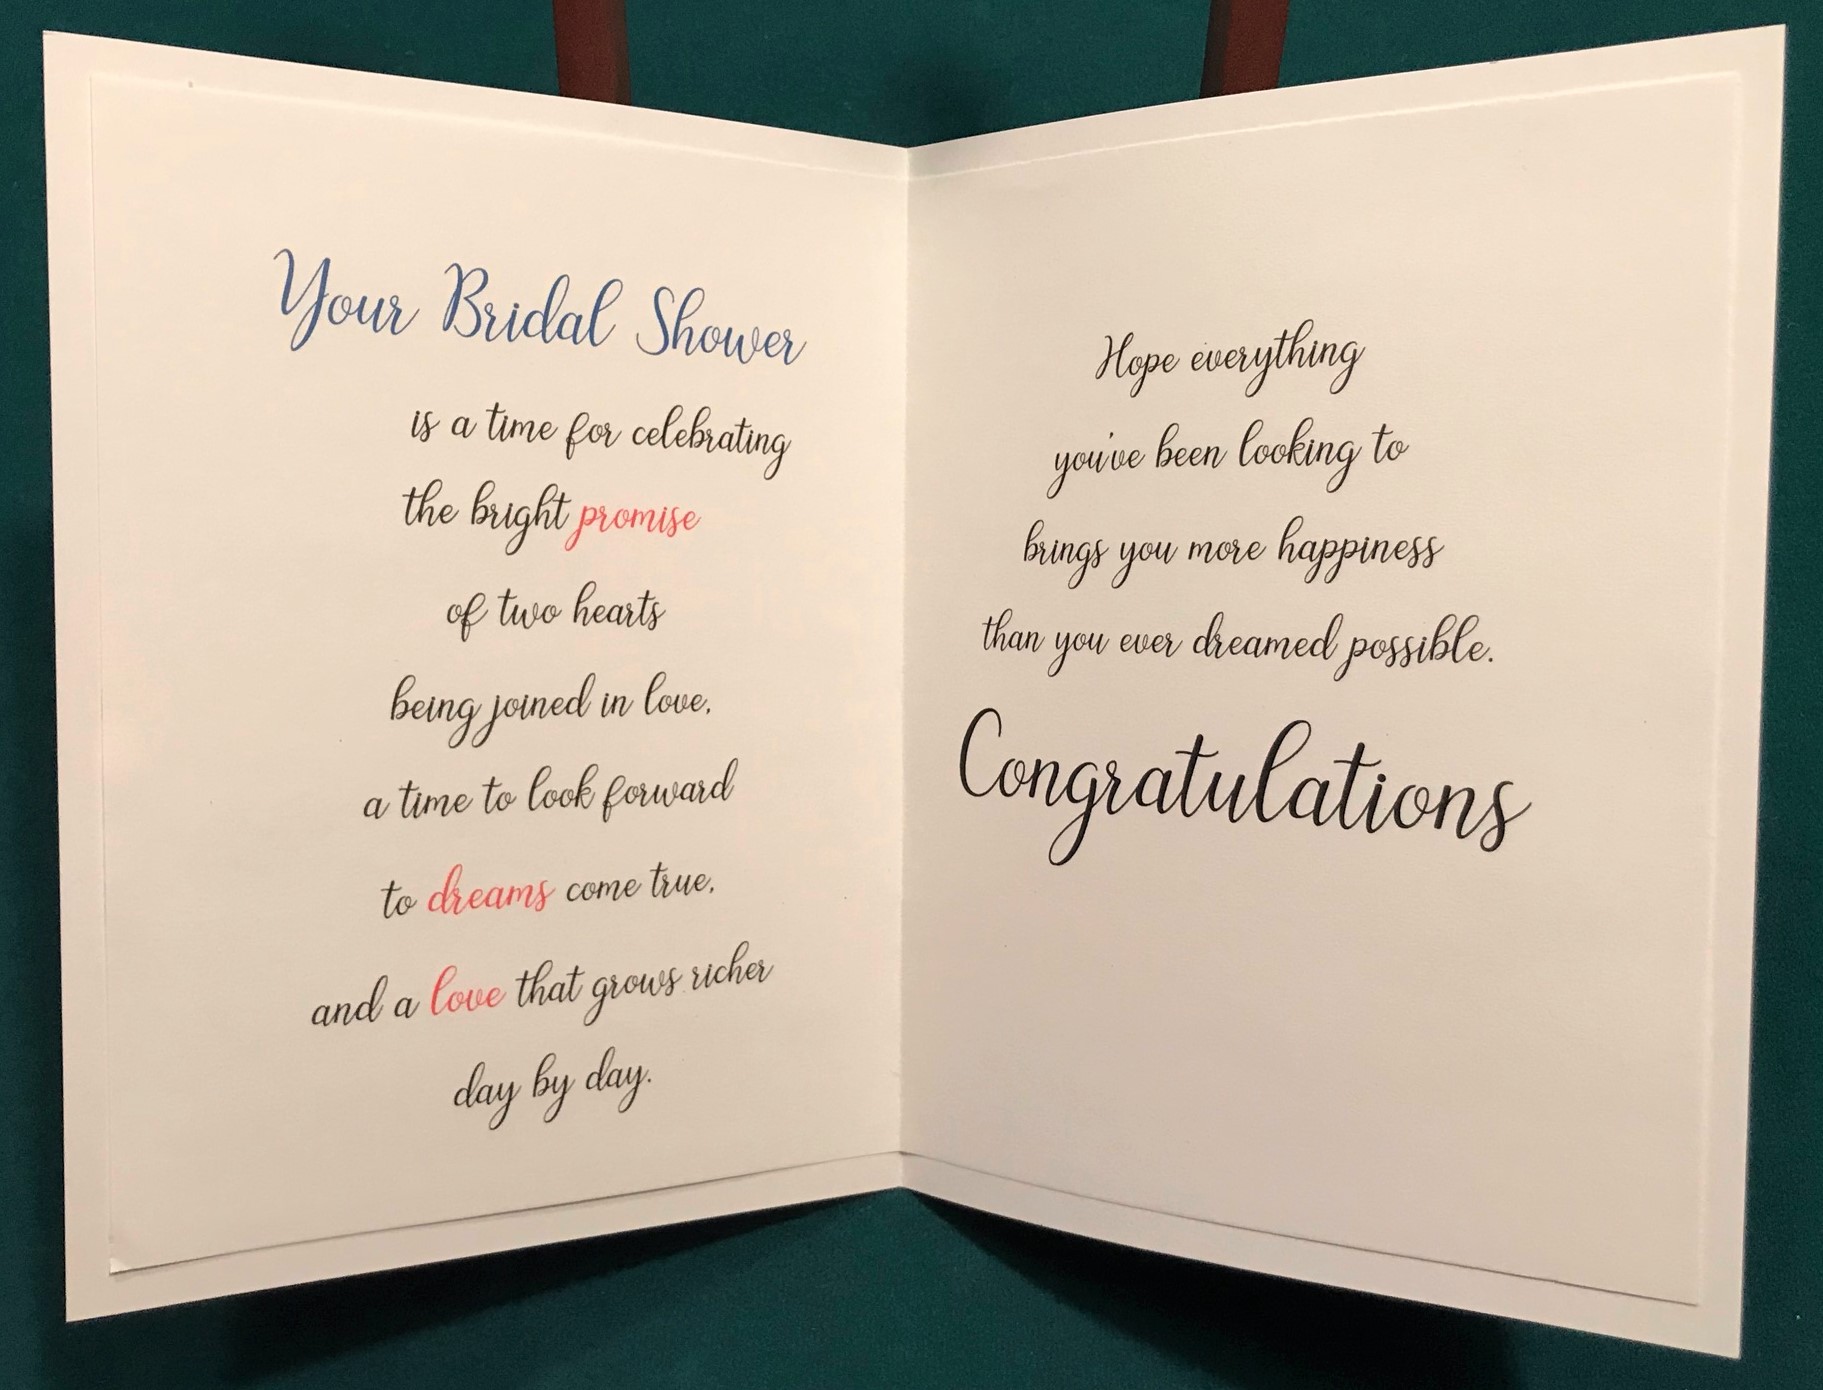 Your Bridal Shower
is a time for celebrating
the bright promise
of two hearts
being joined in love,
a time to look forward
to dreams come true,
and a love that grows richer
day by day.
Hope everything
you've been looking to
brings you more happiness
than you ever dreamed possible.
Congratulations